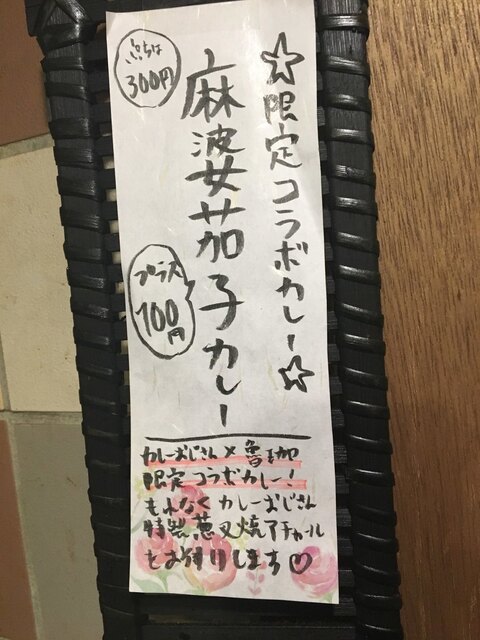 ☆限定コラボカレー☆
麻婆茄子カレー
ぷちは
300円
プラス
100円
カレーおじさん×魯珈
限定コラボカレー!
もれなくカレーおじさん
特製葱叉焼アチャール
をお付けします♡